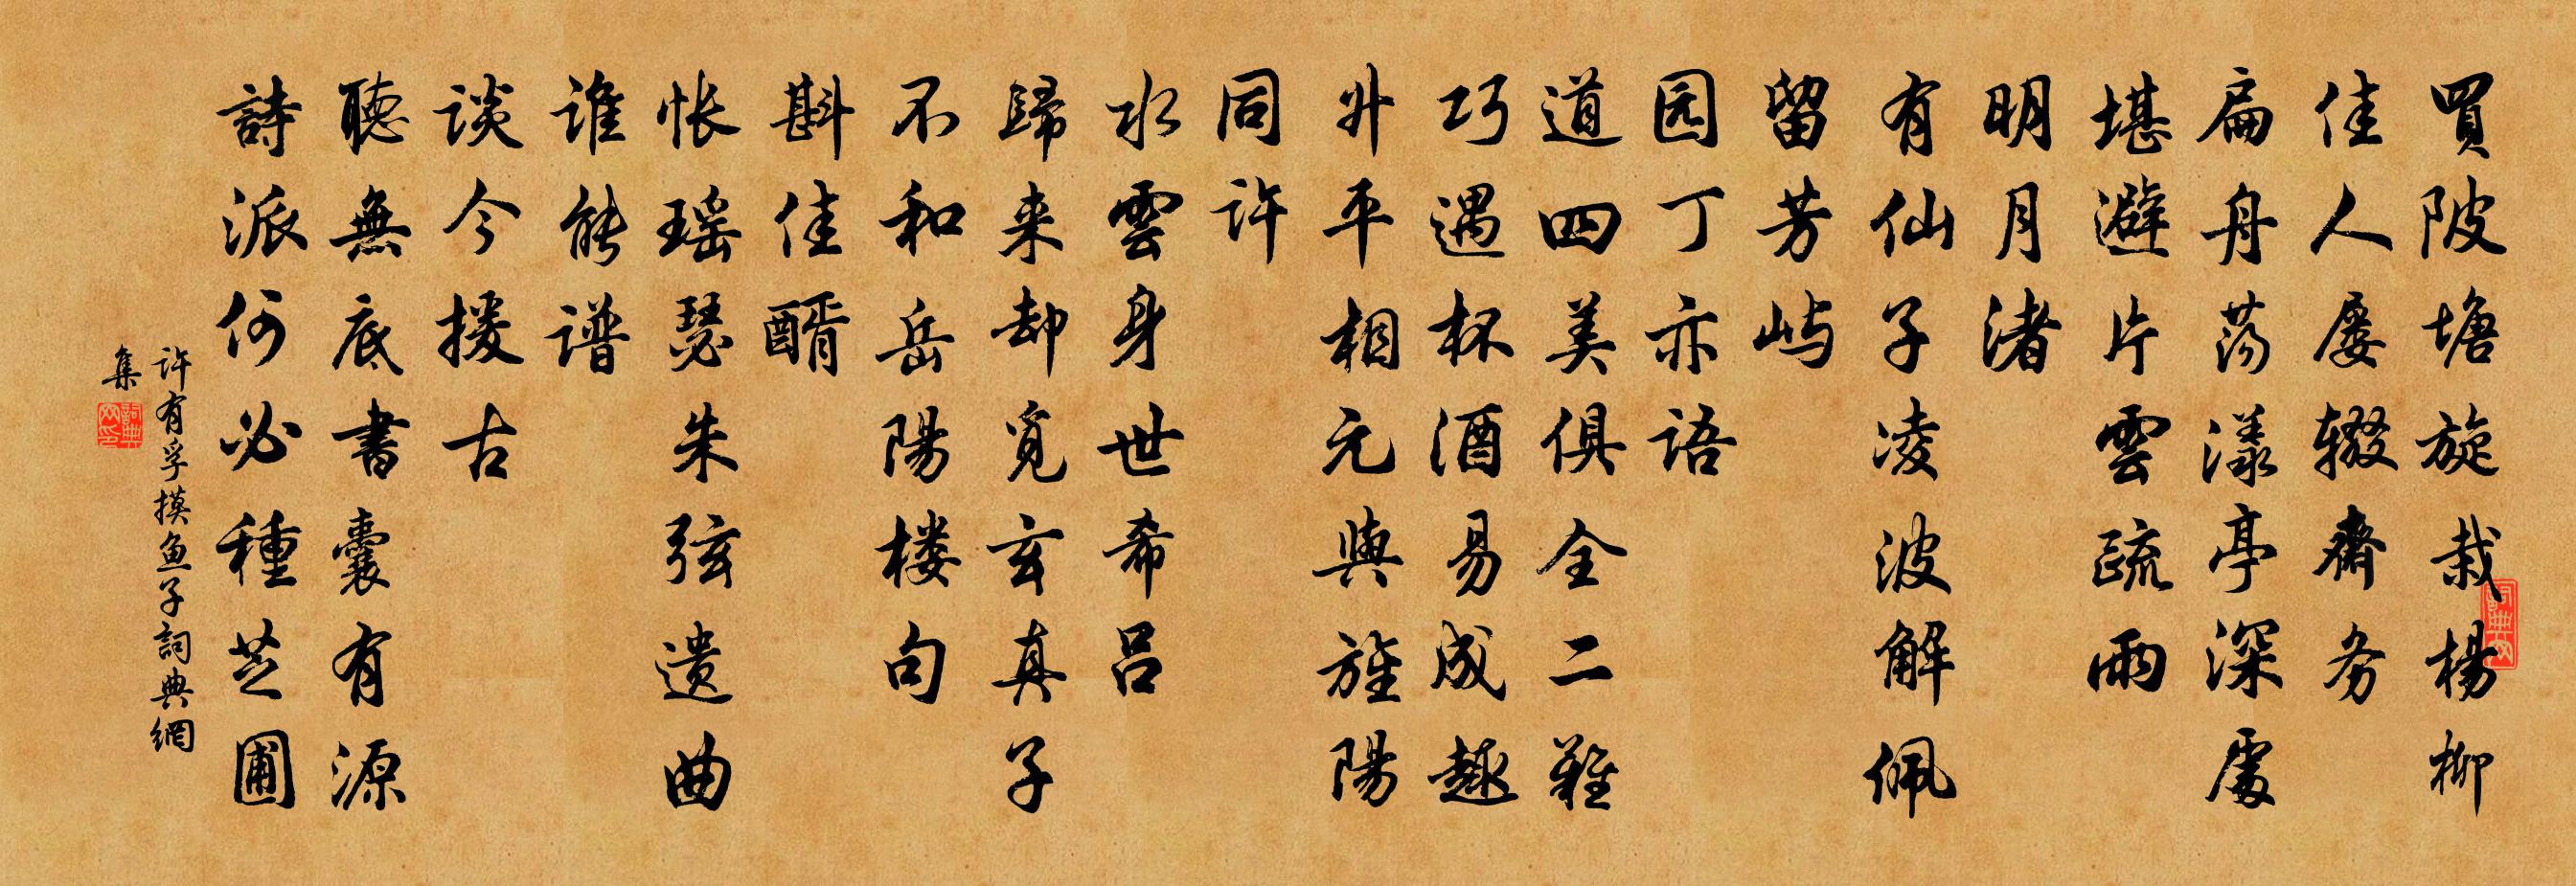 買陂塘旋栽楊柳
佳人屡辍齋务
扁舟荡漾亭深處
堪避片雲疏雨
明月渚
有仙子凌波解佩
留芳屿
园丁亦语
道四美俱全二難
巧遇杯酒易成趣
同许
升平相元與旌陽
水雲身世希吕
歸来却觅玄真子
不和岳陽楼句
斟佳醑
怅瑶瑟朱弦遗曲
谁能谱
谈今援古
聽無底書囊有源
詩派何必種芝圃
许有孚摸鱼子詞典網
集
詞典网